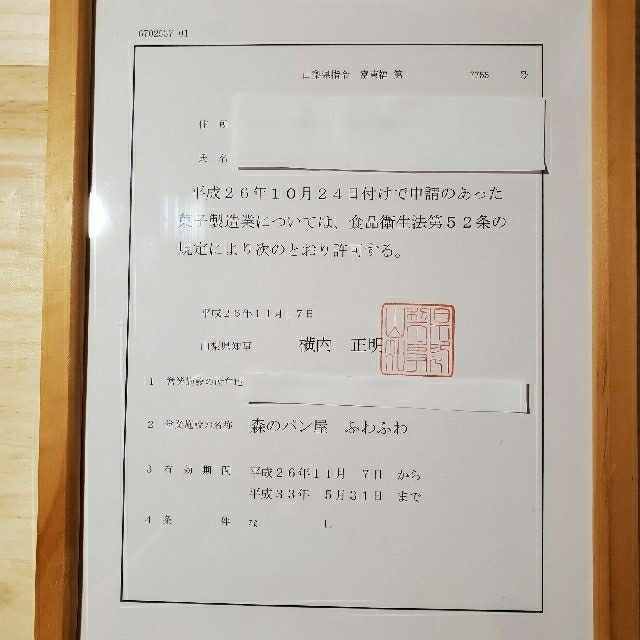 6702657-01
山梨県指令 富東福 第 7755 号
住 所
氏 名
平成26年10月24日付けで申請のあった
菓子製造業については、食品衛生法第52条の
規定により次のとおり許可する。
平成26年11月 7日
山梨県知事 横内 正明
1 営業施設の所在地
2 営業施設の名称 森のパン屋 ふわふわ
3 有 効 期 間 平成26年11月 7日 から
平成33年 5月31日 まで
4 条 件 な し